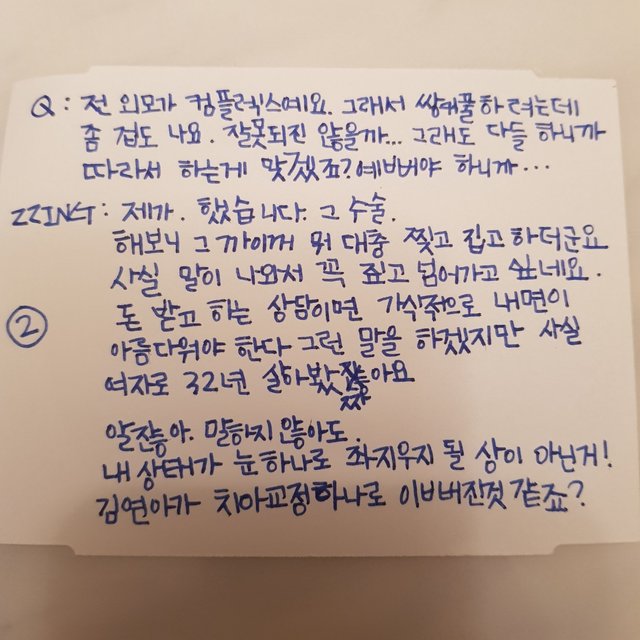 Q : 전 외모가 컴플렉스예요. 그래서 쌍꺼풀하려는데
좀 겁도 나요. 잘못되진 않을까... 그래도 다들 하니까
따라서 하는게 맞겠죠? 예뻐야 하니까...
ZZING : 제가. 했습니다. 그 수술.
해보니 그까이꺼 뭐 대충 찢고 집고 하더군요
사실 말이 나와서 꼭 짚고 넘어가고 싶네요.
② 돈 받고 하는 상담이면 가식적으로 내면이
아름다워야 한다 그런 말을 하겠지만 사실
여자로 32년 살아봤잖아요
알잖아. 말하지 않아도.
내 상태가 눈하나로 좌지우지 될 상이 아닌거!
김연아가 치아교정하나로 이뻐진것 같죠?